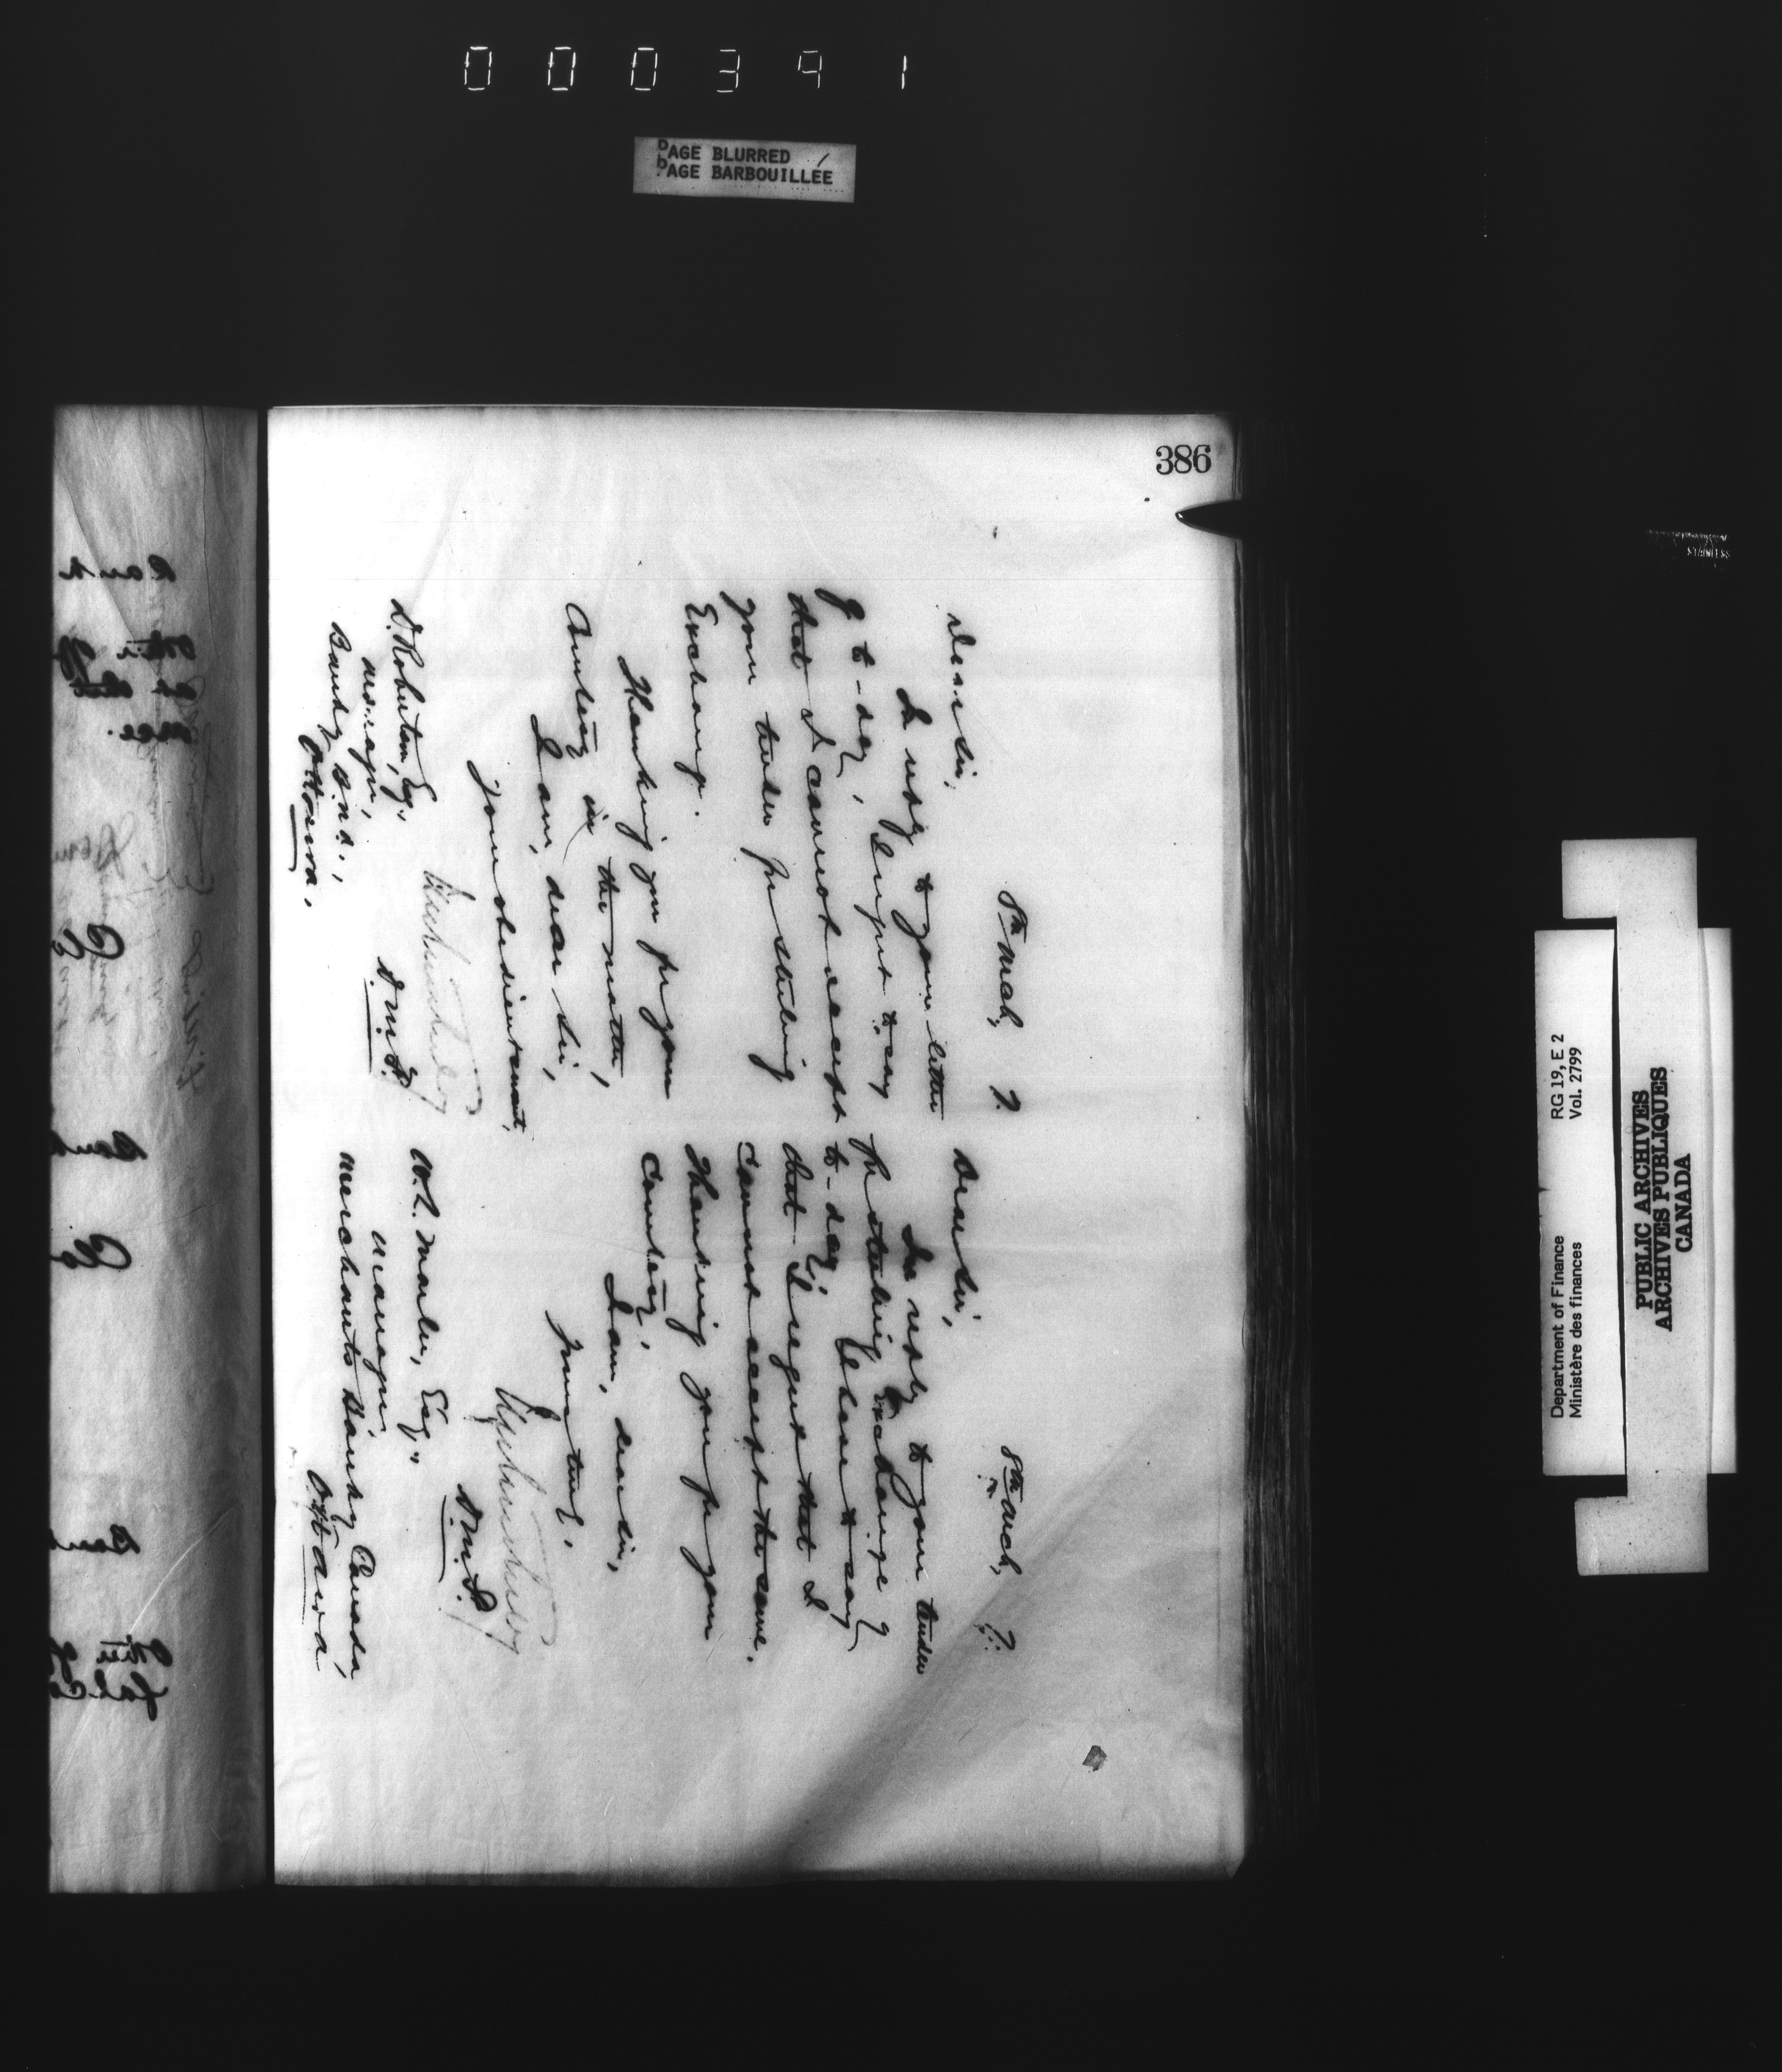 000391
PAGE BLURRED
PAGE BARBOUILLÉE
386
8th March, 7.
Dear Sir,
In reply to your letter
of to-day, I regret to say
that I cannot accept
your tender for sterling
Exchange.
Thanking you for your
Courtesy in the matter,
I am, dear Sir,
Your obedient servant,
D.M.F.
D. Robertson, Esq.,
Manager,
Bank of B.N.A.,
Ottawa.
8th March, 7.
Dear Sir,
In reply to your tender
for sterling Exchange of
to-day, I beg to say
that I regret that I
cannot accept the same.
Thanking you for your
Courtesy,
I am, dear Sir,
Yours truly,
D.M.F.
W.L. Marler, Esq.,
Manager
Merchants Bank of Canada,
Ottawa
Department of Finance RG 19, E 2
Ministère des finances Vol. 2799
PUBLIC ARCHIVES
ARCHIVES PUBLIQUES
CANADA